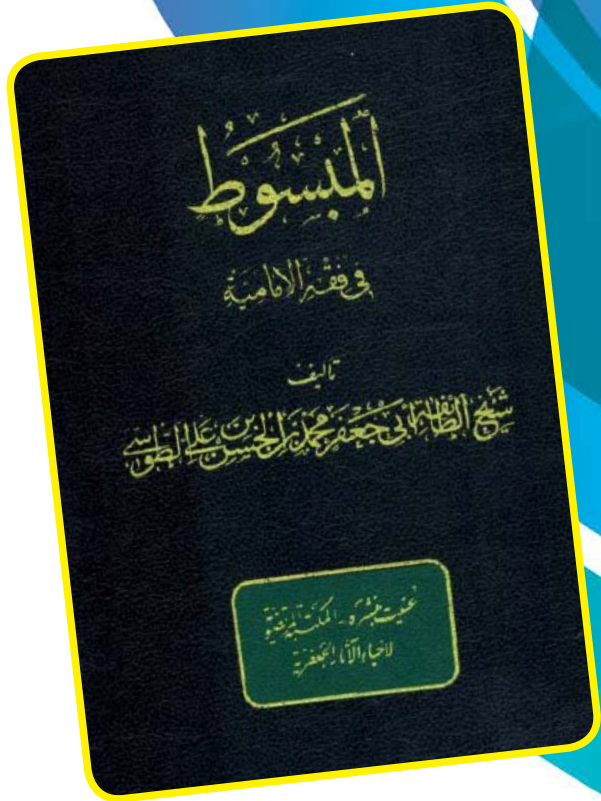 المبسوط
في فقه الإمامية
تأليف
شيخ الطائفة أبي جعفر محمد بن الحسن بن علي الطوسي
عنيت بنشره - المكتبة المرتضوية
لإحياء الآثار الجعفرية